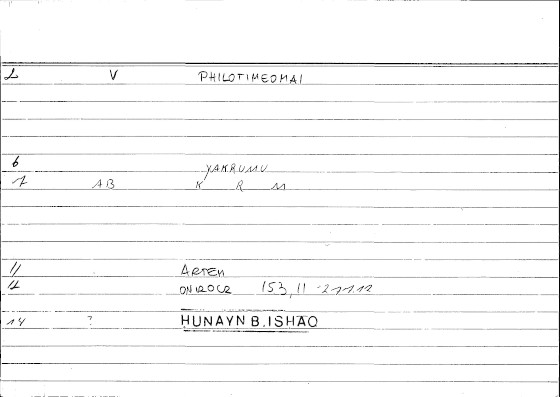 L V PHILOTIMEOMAI
6 YAKRUMU
7 AB K R M
11 ARTEM
12 ONIROCR 153,11 - 277.12
14 ? HUNAYN B. ISHAQ